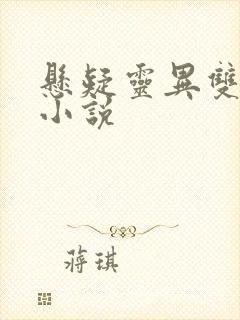 懸疑靈異雙
小說
蔣琪